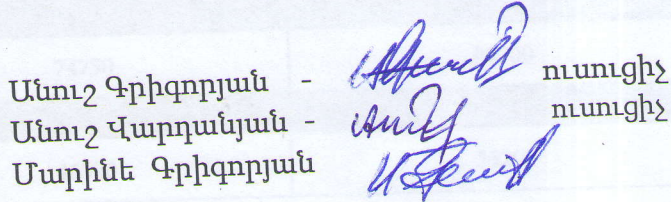 Անուշ Գրիգորյան - ուսուցիչ
Անուշ Վարդանյան - ուսուցիչ
Մարինե Գրիգորյան